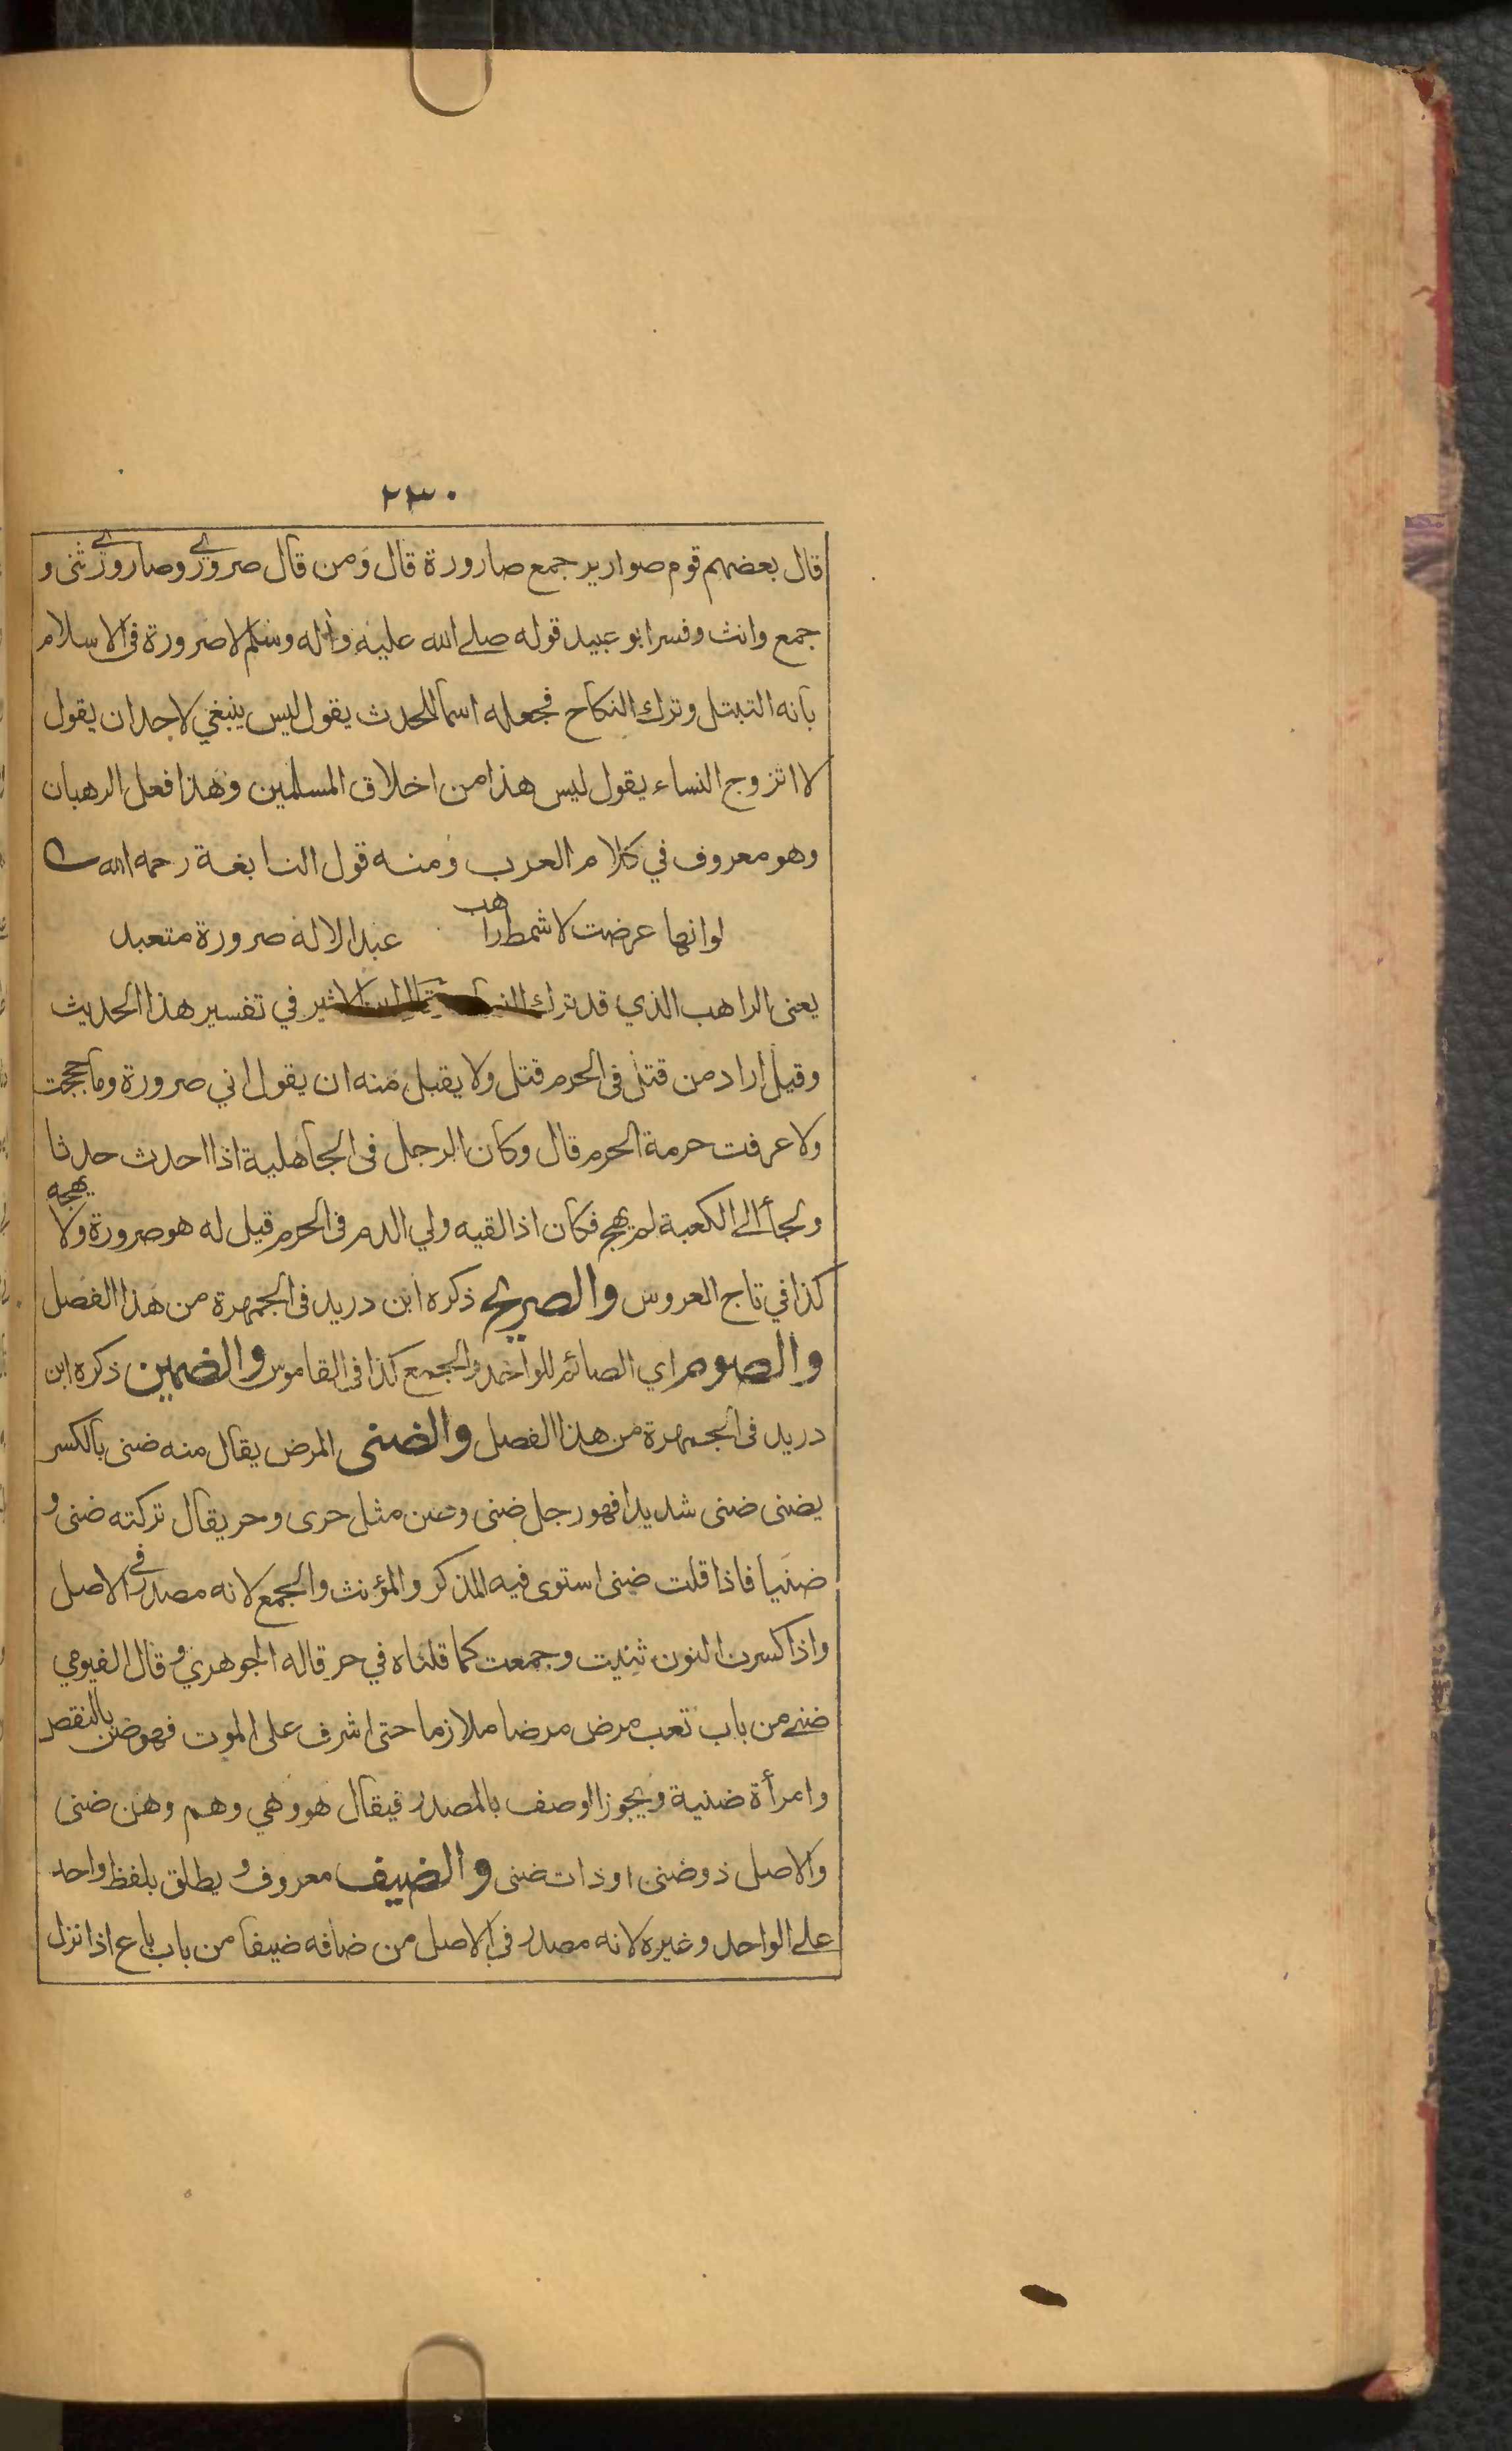 ٢٣٠
قال بعضهم قوم صوارير جمع صارورة قال ومن قال صروري وصاروري ثنى و
جمع وانث وفسر ابو عبيد قوله صلے الله عليه وآله وسلم لا صرورة فى الاسلام
بانه التبتل وترك النكاح فجعله اسما للحدث يقول ليس ينبغي لاحد ان يقول
لا اتزوج النساء يقول ليس هذا من اخلاق المسلمين وهذا فعل الرهبان
وهو معروف في كلام العرب ومنه قول النابغة رحمه الله
لو انها عرضت لاشمط راهب عبد الاله صرورة متعبد
يعنى الراهب الذي قد ترك قال ابن الاثير في تفسير هذا الحديث
وقيل اراد من قتل فى الحرم قتل ولا يقبل منه ان يقول اني صرورة وما حججت
ولا عرفت حرمة الحرم قال وكان الرجل فى الجاهلية اذا احدث حدثا
ولجأ الى الكعبة لم يهج فكان اذا لقيه ولي الدم فى الحرم قيل له هو صرورة ولا تهجه
كذا في تاج العروس والصريح ذكره ابن دريد فى الجمهرة من هذا الفصل
والصوم اي الصائم للواحد والجمع كذا فى القاموس والضمين ذكره ابن
دريد فى الجمهرة من هذا الفصل والضنى المرض يقال منه ضنى بالكسر
يضنى ضنى شديدا فهو رجل ضنى وضن مثل حرى وحر يقال تركته ضنى و
ضنيا فاذا قلت ضنى استوى فيه المذكر والمؤنث والجمع لانه مصدر في الاصل
واذا كسرت النون ثنيت وجمعت كما قلناه في حر قاله الجوهري وقال الفيومي
ضنے من باب تعب مرض مرضا ملازما حتى اشرف على الموت فهو ضن بالنقص
وامرأة ضنية ويجوز الوصف بالمصدر فيقال هو وهي وهم وهن ضنى
والاصل ذو ضنى او ذات ضنى والضيف معروف ويطلق بلفظ واحد
على الواحد وغيره لانه مصدر في الاصل من ضافه ضيفا من باب باع اذا نزل